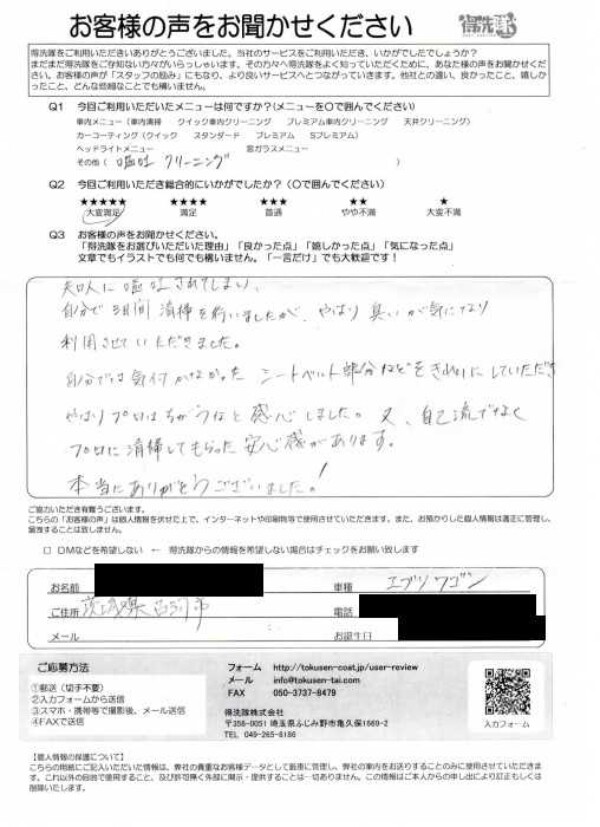 お客様の声をお聞かせください
得洗隊
得洗隊をご利用いただきありがとうございました。当社のサービスをご利用いただき、いかがでしたでしょうか?
まだまだ得洗隊をご存知ない方々がいらっしゃいます。その方々へ得洗隊をよく知っていただくために、あなた様の声をお聞かせくだ
さい。お客様の声が「スタッフの励み」にもなり、より良いサービスへとつながっていきます。他社との違い、良かったこと、嬉しか
ったこと、どんな些細なことでも構いません。
Q1 今回ご利用いただいたメニューは何ですか?(メニューを〇で囲んでください)
車内メニュー(車内清掃 クイック車内クリーニング プレミアム車内クリーニング 天井クリーニング)
カーコーティング(クイック スタンダード プレミアム Sプレミアム)
ヘッドライトメニュー 窓ガラスメニュー
その他( 嘔吐 クリーニング )
Q2 今回ご利用いただき総合的にいかがでしたか?(〇で囲んでください)
★★★★★ ★★★★ ★★★ ★★ ★
大変満足 満足 普通 やや不満 大変不満
Q3 お客様の声をお聞かせください。
「得洗隊をお選びいただいた理由」「良かった点」「嬉しかった点」「気になった点」
文章でもイラストでも何でも構いません。「一言だけ」でも大歓迎です!
知人に嘔吐されてしまい、
自分で 3日間 清掃を行いましたが、やはり 臭いが気になり
利用させていただきました。
自分では気付かなかった シートベルト部分などをきれいにしていただき
やはりプロはちがうなと感心しました。又、自己流でなく
プロに清掃してもらった安心感があります。
本当にありがとうございました!
ご協力いただき有難うございます。
こちらの「お客様の声」は個人情報を伏せた上で、インターネットや印刷物等で使用させていただきます。また、お預かりした個人情報は適正に管理し、
漏洩することは致しません。
□ DMなどを希望しない ← 得洗隊からの情報を希望しない場合はチェックをお願い致します
お名前 車種 エブリワゴン
ご住所 茨城県古河市 電話
メール お誕生日
ご応募方法
①郵送(切手不要)
②入力フォームから送信
③スマホ・携帯等で撮影後、メール送信
④FAXで送信
フォーム http://tokusen-coat.jp/user-review
メール info@tokusen-tai.com
FAX 050-3737-8479
得洗隊株式会社
〒356-0051 埼玉県ふじみ野市亀久保1669-2
TEL 049-265-8186
入力フォーム
【個人情報の保護について】
こちらの用紙にご記入いただいた情報は、弊社の貴重なお客様データとして厳重に管理し、弊社の案内をお送りすることのみに使用させていただきま
す。これ以外の目的で使用すること、及び許可無く外部に開示・提供することは一切ありません。この情報はご本人からの申し出により訂正もしくは
削除いたします。